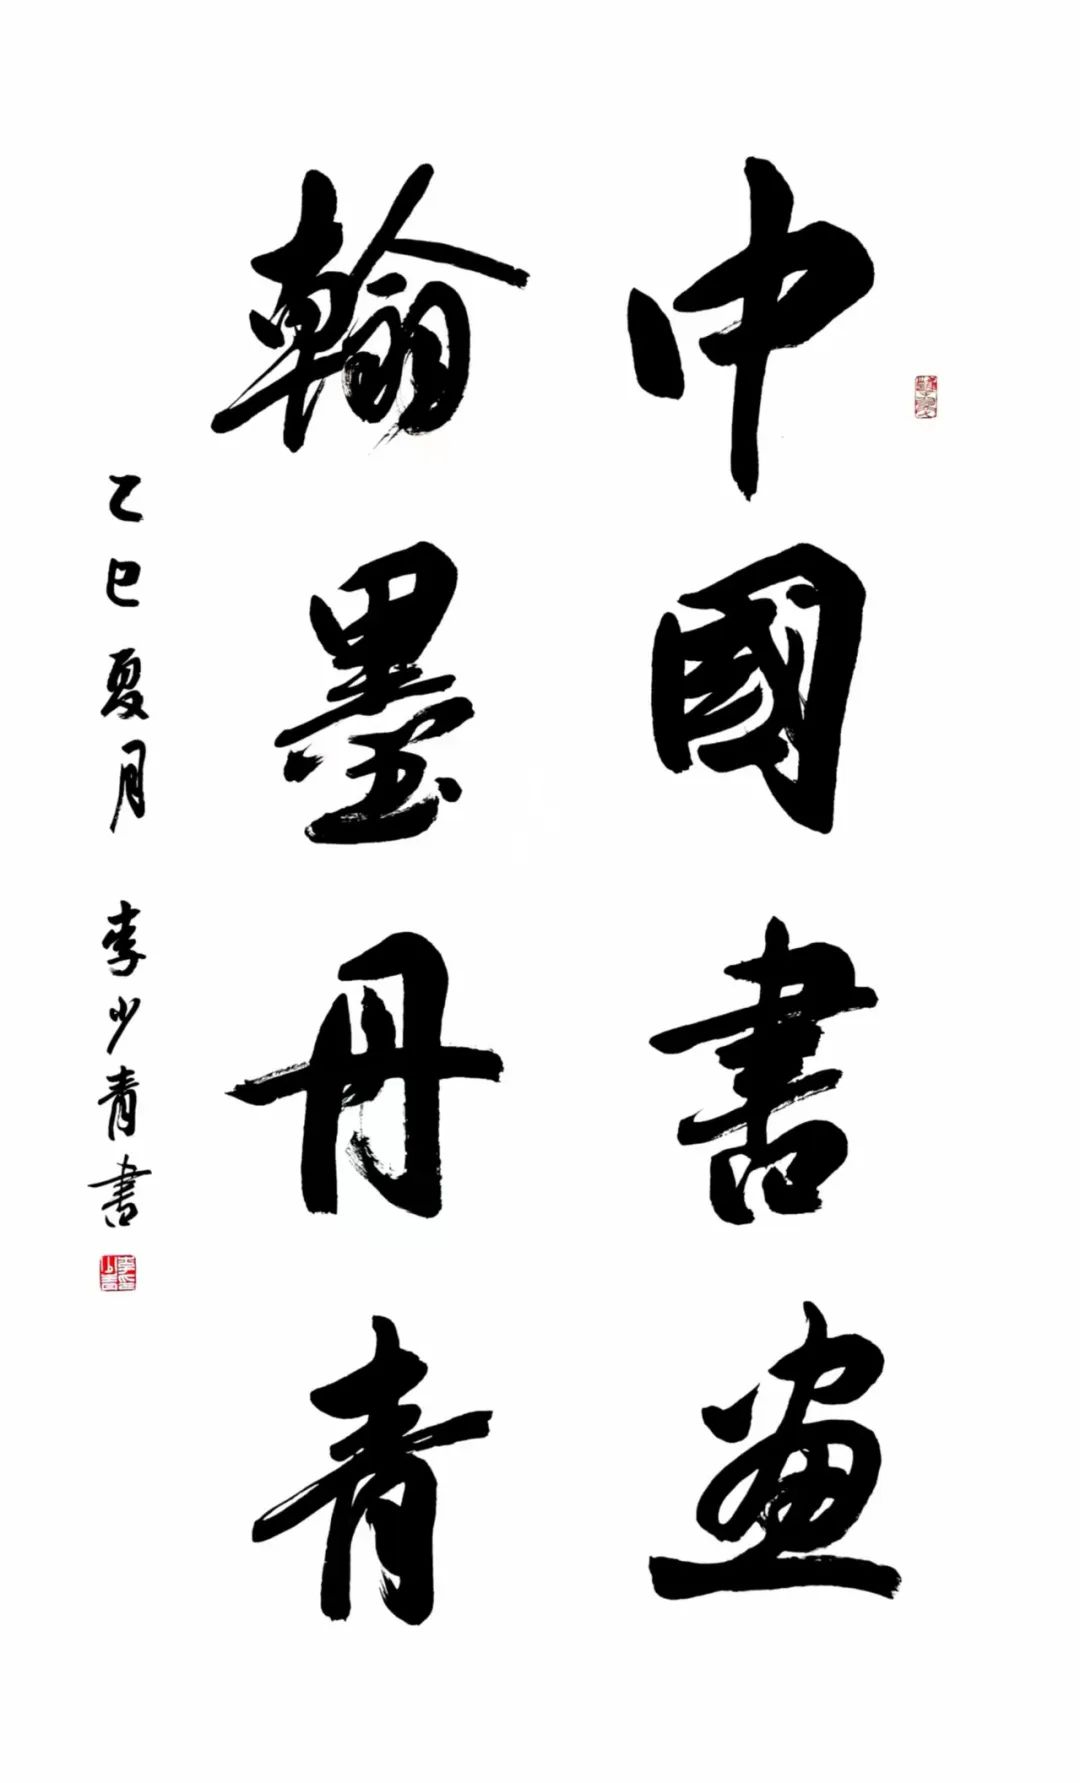 中國書畫
翰墨丹青
乙巳夏月 李少青書